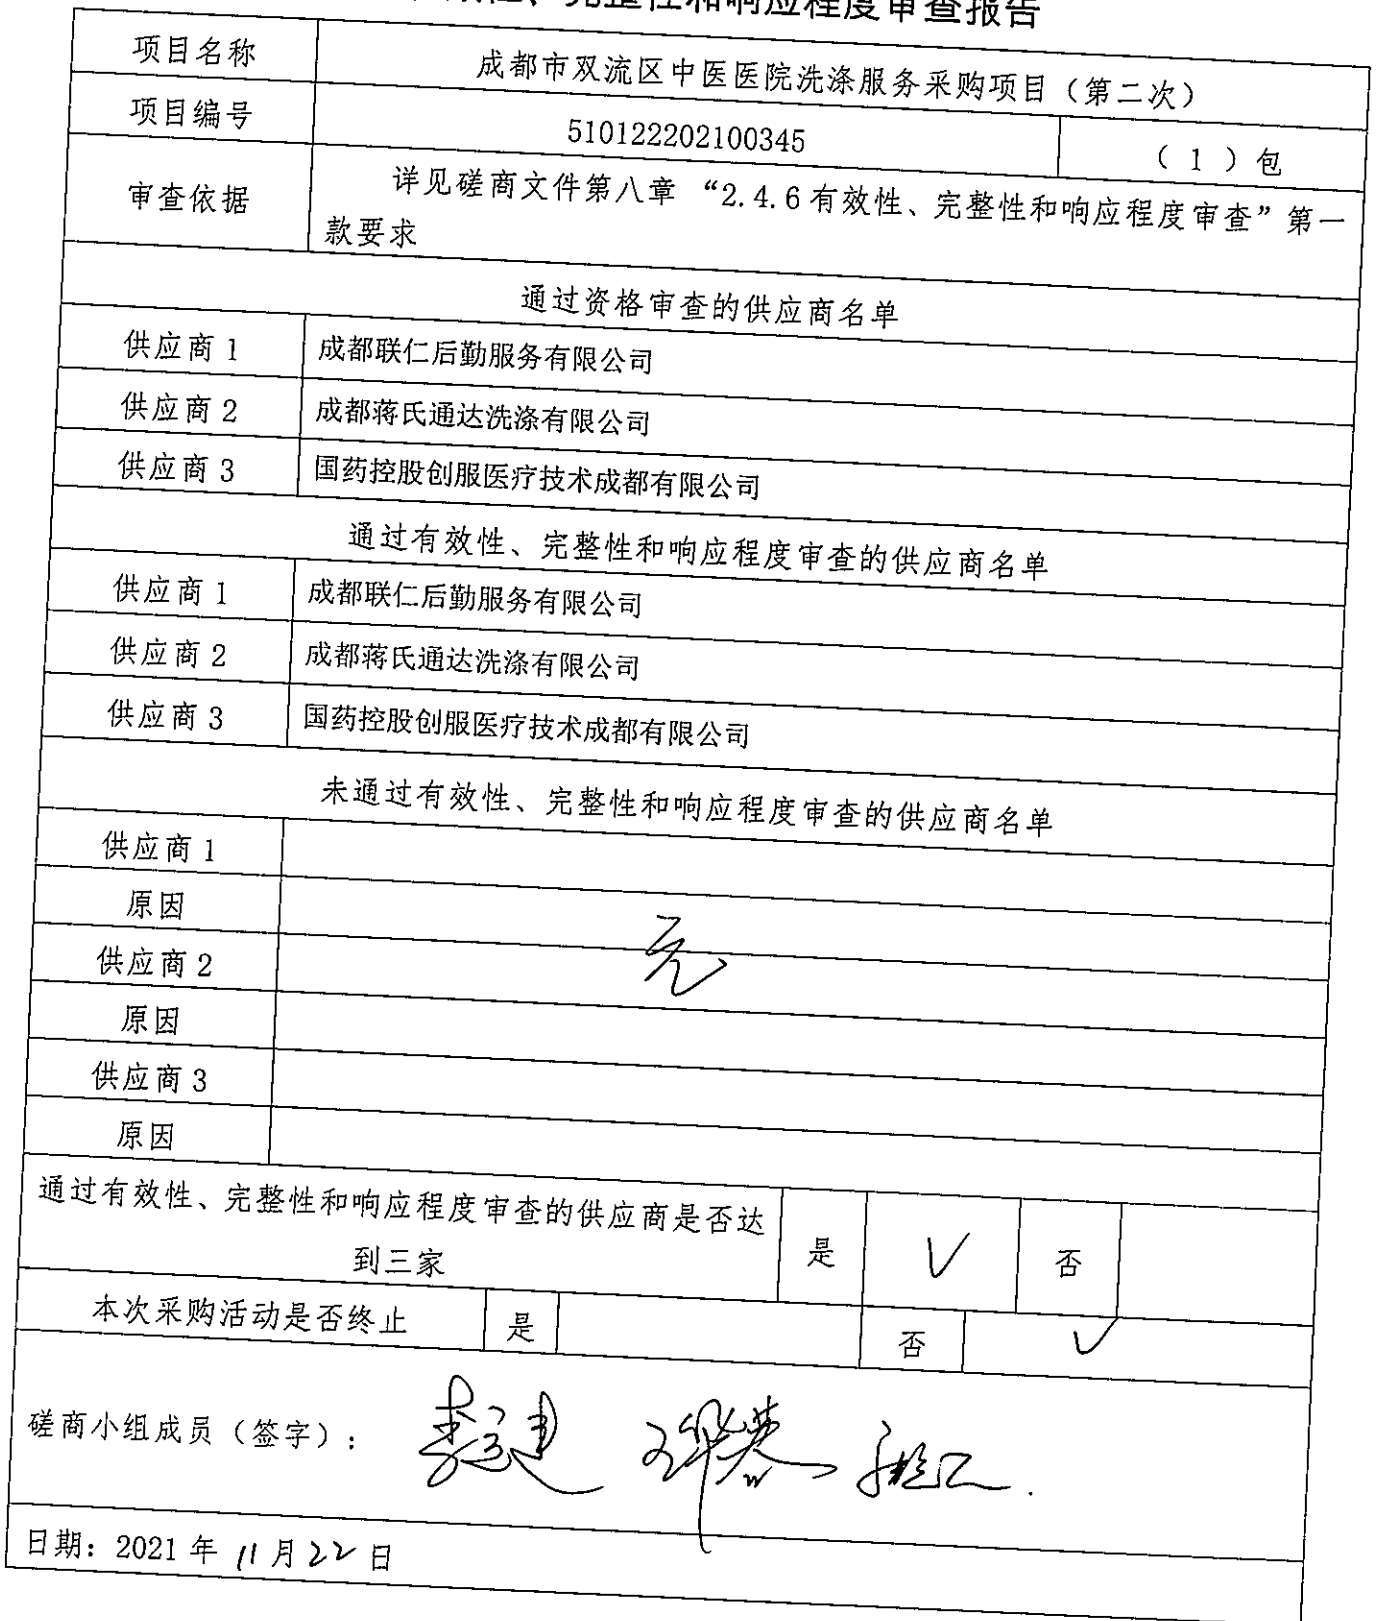 、完整性和响应程度审查报告
项目名称 成都市双流区中医医院洗涤服务采购项目（第二次）
项目编号 510122202100345 （1）包
审查依据 详见磋商文件第八章 “2.4.6有效性、完整性和响应程度审查”第一
款要求
通过资格审查的供应商名单
供应商1 成都联仁后勤服务有限公司
供应商2 成都蒋氏通达洗涤有限公司
供应商3 国药控股创服医疗技术成都有限公司
通过有效性、完整性和响应程度审查的供应商名单
供应商1 成都联仁后勤服务有限公司
供应商2 成都蒋氏通达洗涤有限公司
供应商3 国药控股创服医疗技术成都有限公司
未通过有效性、完整性和响应程度审查的供应商名单
供应商1
原因
无
供应商2
原因
供应商3
原因
通过有效性、完整性和响应程度审查的供应商是否达
到三家 是 √ 否
本次采购活动是否终止 是 否 √
磋商小组成员（签字）：
日期：2021年11月22日